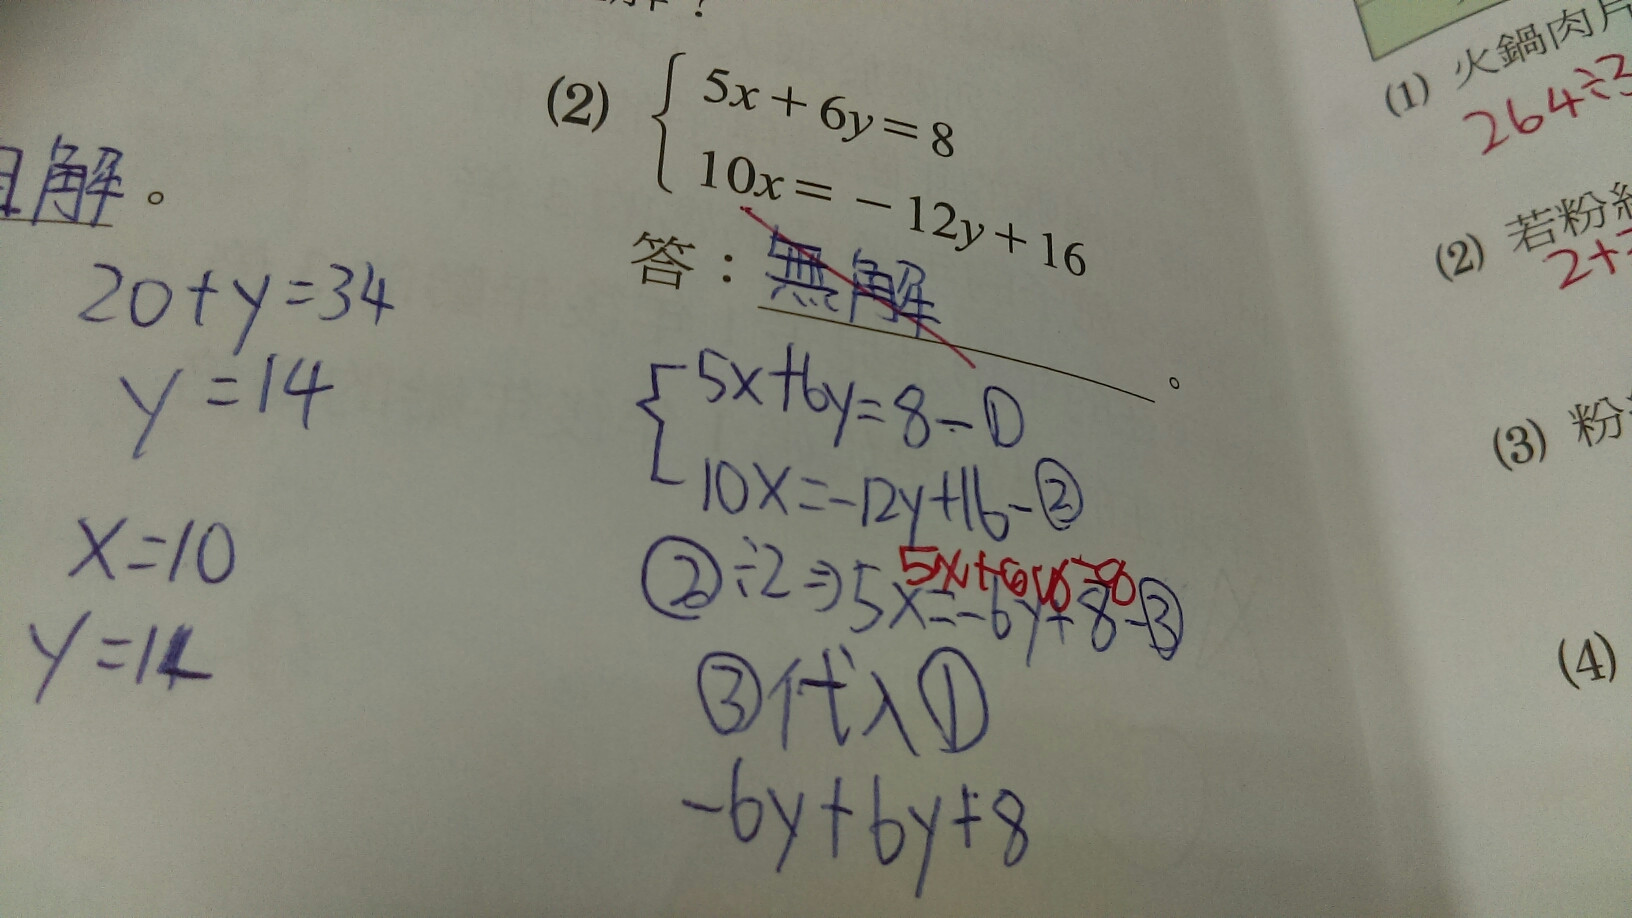 解。
20+y=34
y=14
x=10
y=14
(2) { 5x+6y=8
10x=-12y+16
答：無解。
{ 5x+6y=8-①
10x=-12y+16-②
5x+6y=8
②÷2⇒5x=-6y+8-③
③代入①
-6y+6y+8
(1) 火鍋肉片
264÷3
(2) 若粉
2+
(3) 粉
(4)